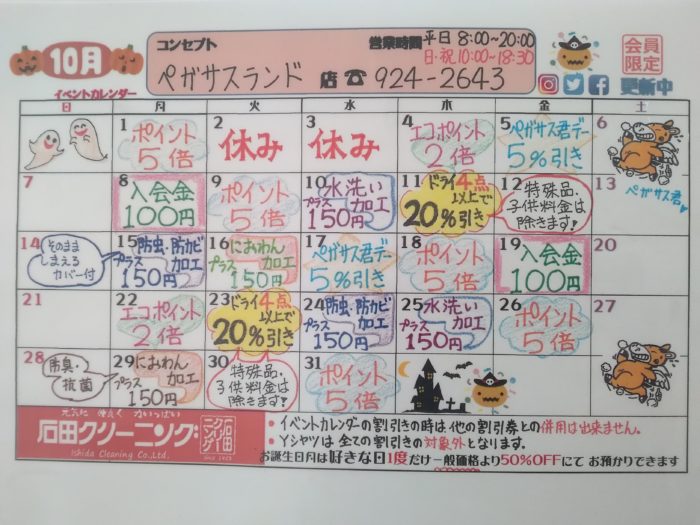 10月
イベントカレンダー
コンセプト
ペガサスランド 店 ☎ 924-2643
営業時間 平日 8:00~20:00
日・祝 10:00~18:30
会員
限定
更新中
日 月 火 水 木 金 土
1 ポイント
5倍
2 休み
3 休み
4 エコポイント
2倍
5 ペガサス君デー
5%引き
6
ペガサス君
7
8 入会金
100円
9 ポイント
5倍
10 水洗い
プラス 加工
150円
11 ドライ4点
以上で
20%引き
12 特殊品・
子供料金は
除きます!
13
14 そのまま
しまえる
カバー付
15 防虫・防カビ
プラス 加工
150円
16 におわん
プラス 加工
150円
17 ペガサス君デー
5%引き
18 ポイント
5倍
19 入会金
100円
20
21
22 エコポイント
2倍
23 ドライ4点
以上で
20%引き
24 防虫・防カビ
プラス 加工
150円
25 水洗い
プラス 加工
150円
26 ポイント
5倍
27
28 防臭・
抗菌
29 におわん
プラス 加工
150円
30 特殊品・
子供料金は
除きます!
31 ポイント
5倍
元気に 仲良く 力いっぱい
石田クリーニング
Ishida Cleaning Co.,Ltd.
石田
クリーニング
・イベントカレンダーの割り引きの時は他の割引券との併用は出来ません。
・Yシャツは全ての割引きの対象外となります。
お誕生日月は好きな日1度だけ一般価格より50%OFFにてお預かりできます